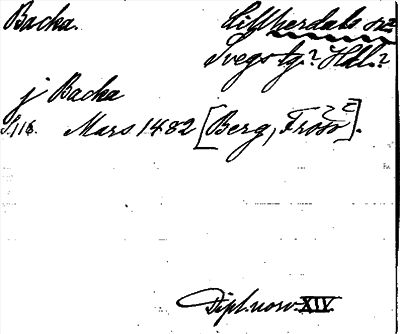 Backa.
Lillherdals sn
Svegs tg.? Hdl.?
j Backa
S. 118. Mars 1482 [Berg, Frösö].
Dipl. norv. XIV.